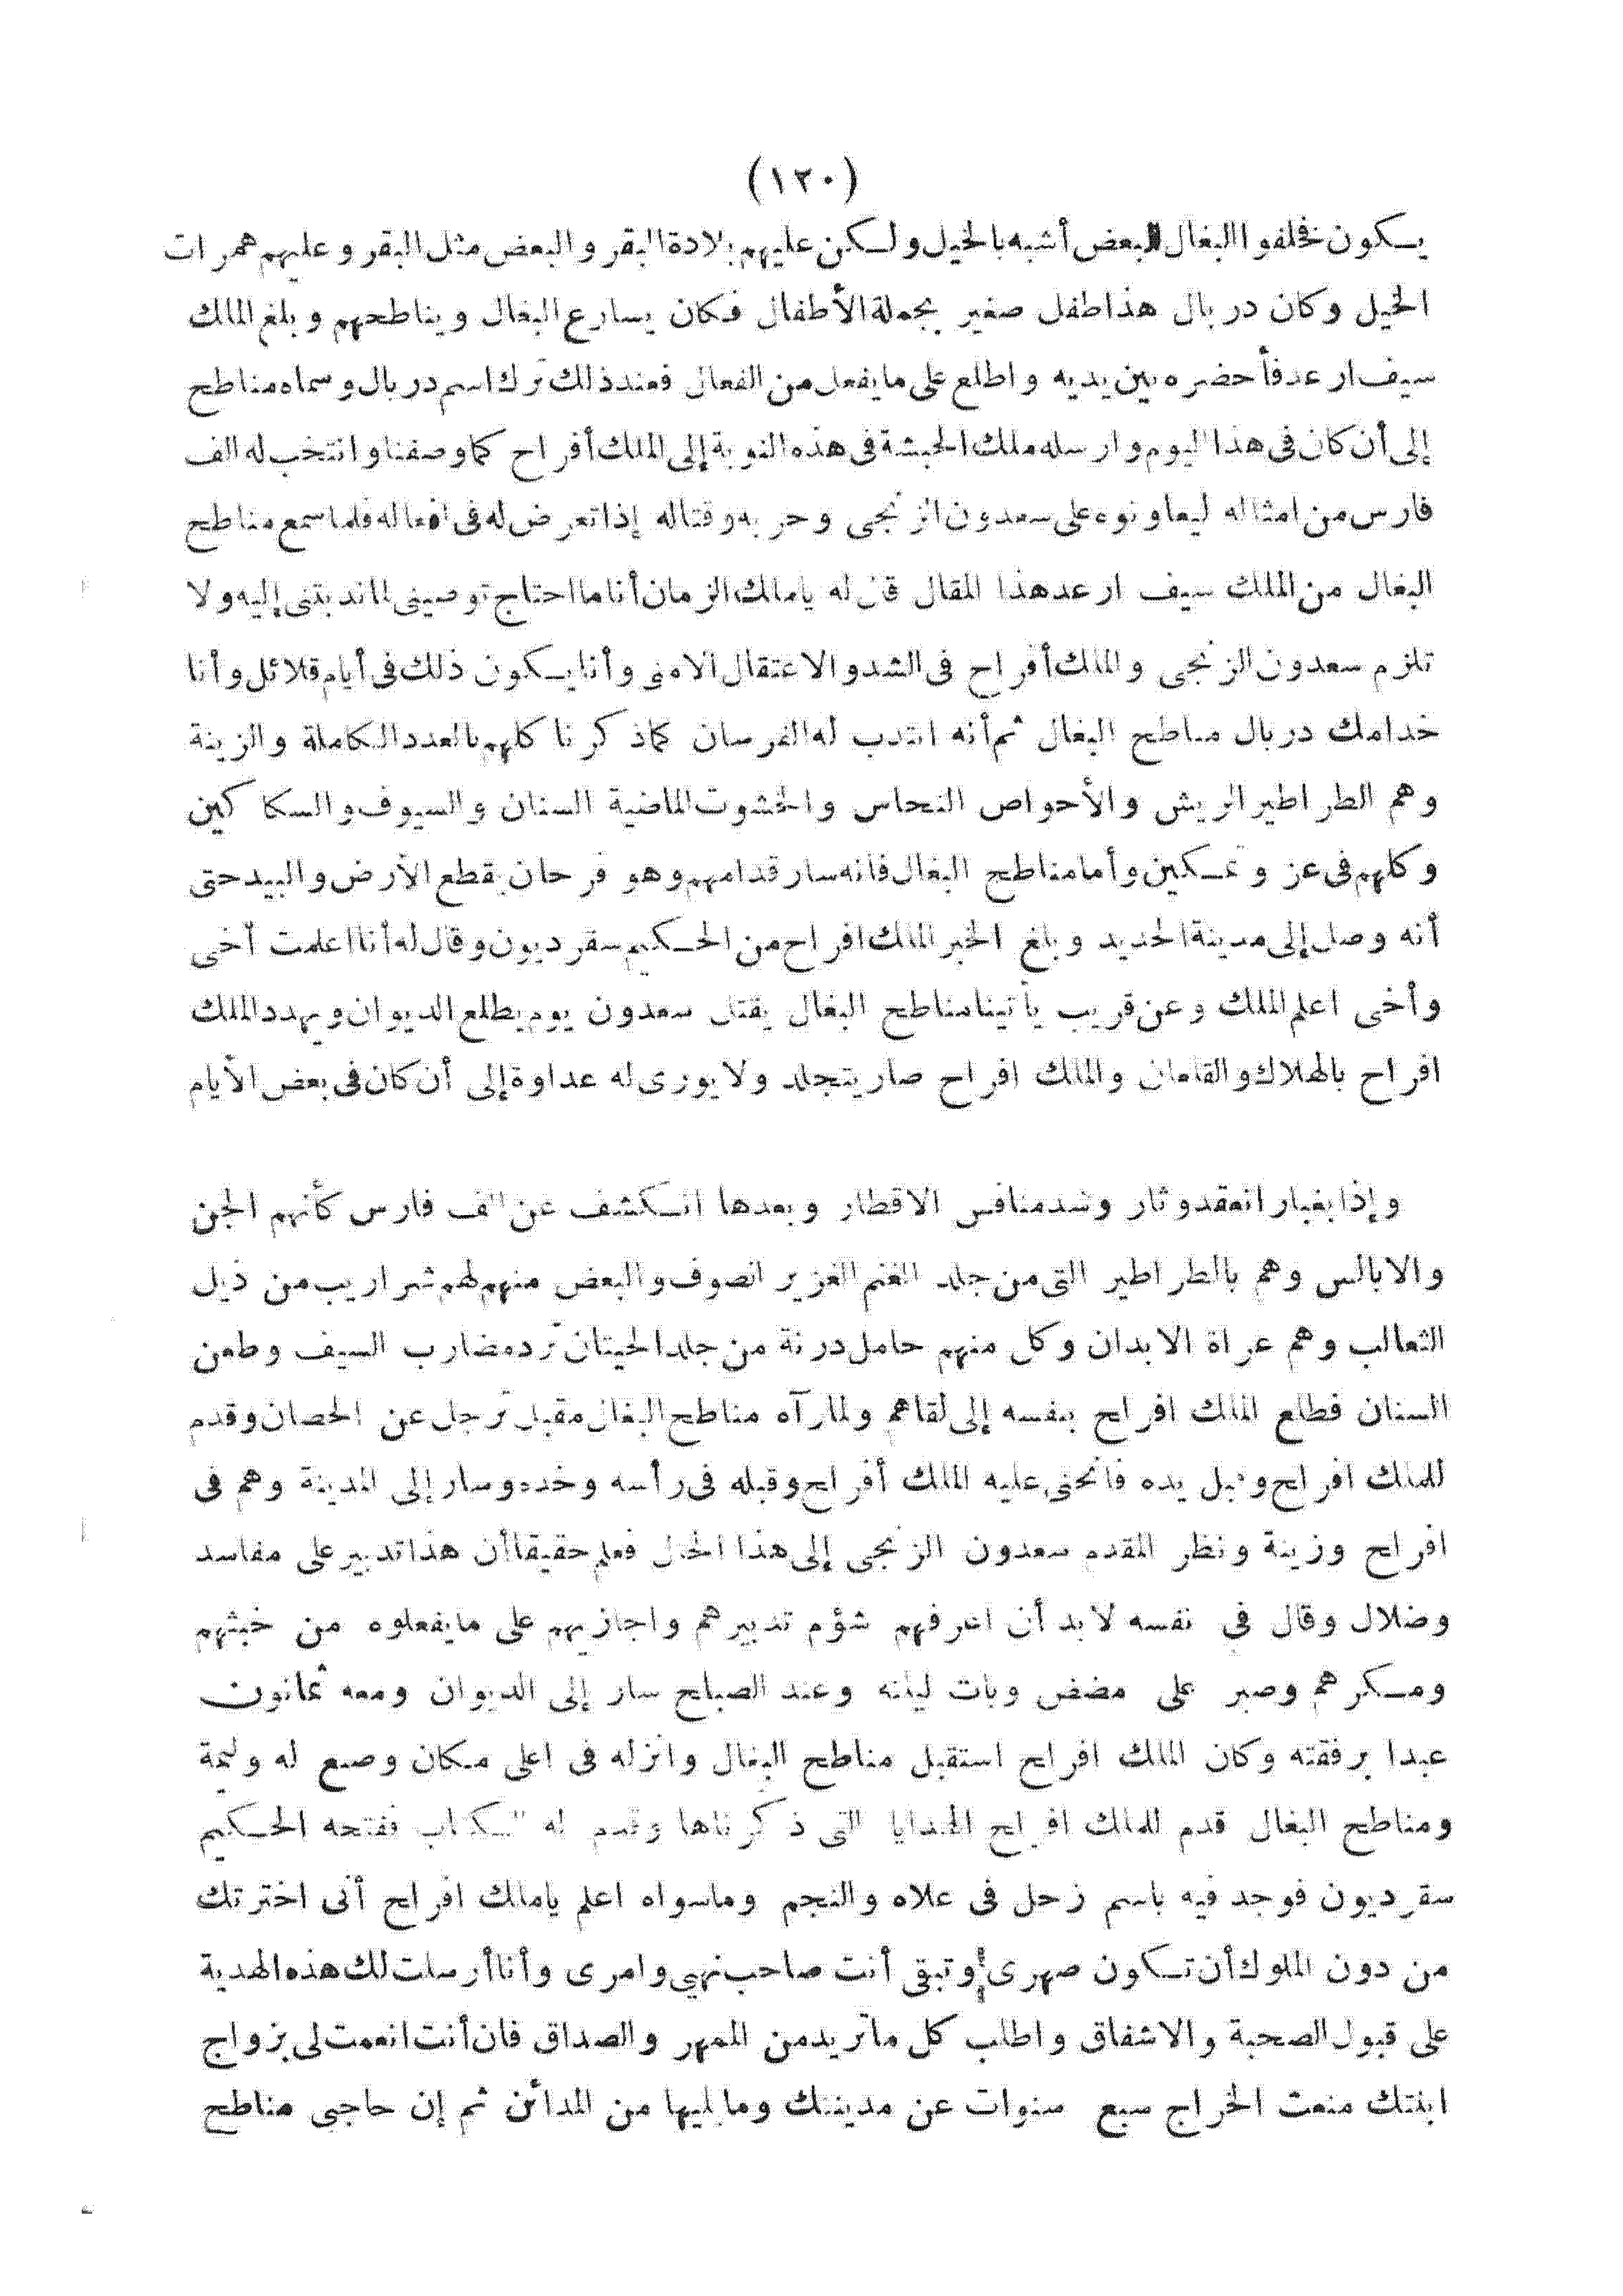 (١٢٠)
يكون فخلفوا البغال البعض أشبه بالخيل ولكن عليهم بلادة البقر والبعض مثل البقر وعليهم همرات
الخيل وكان دربال هذا طفل صغير بجملة الأطفال فكان يسارع البغال ويناطحهم وبلغ الملك
سيف ارعد فأحضره بين يديه واطلع على ما يفعل من الفعال فعند ذلك ترك اسم دربال وسماه مناطح
إلى أن كان فى هذا اليوم وارسله ملك الحبشة فى هذه النوبة إلى الملك أفراح كما وصفنا وانتخب له الف
فارس من امثاله ليعاونوه على سعدون الزنجى وحربه وقتاله إذا تعرض له فى افعاله فلما سمع مناطح
البغال من الملك سيف ارعد هذا المقال قال له ياملك الزمان أنا ما احتاج توصينى لما ندبتنى إليه ولا
تلزم سعدون الزنجى والملك أفراح فى الشد والاعتقال الا منى وأنا يكون ذلك فى أيام قلائل وأنا
خدامك دربال مناطح البغال ثم أنه انتدب له الفرسان كما ذكرنا كلهم بالعدد الكاملة والزينة
وهم الطراطير الريش والأحواص النحاس والخشوت الماضية السنان والسيوف والسكاكين
وكلهم فى عز وتمكين وأما مناطح البغال فانه سار قدامهم وهو فرحان بقطع الأرض والبيد حتى
أنه وصل إلى مدينة الحديد وبلغ الخبر الملك افراح من الحكيم سقرديون وقال له أنا اعلمت أخى
وأخى اعلم الملك وعن قريب يأتينا مناطح البغال يقتل سعدون يوم يطلع الديوان ويهدد الملك
افراح بالهلاك والقلعان والملك افراح صار يتجلد ولا يورى له عداوة إلى أن كان فى بعض الأيام
وإذا بغبار انعقد وثار وشد منافس الاقطار وبعدها انكشف عن الف فارس كأنهم الجن
والابالس وهم بالطراطير التى من جلد الغنم الغزير الصوف والبعض منهم لهم شراريب من ذيل
الثعالب وهم عراة الابدان وكل منهم حامل درنة من جلد الحيتان ترد مضارب السيف وطعن
السنان فطلع الملك افراح بنفسه إلى لقاهم ولما رآه مناطح البغال مقبل ترجل عن الحصان وقدم
للملك افراح وقبل يده فانحنى عليه الملك أفراح وقبله فى رأسه وخده وسار إلى المدينة وهم فى
افراح وزينة ونظر المقدم سعدون الزنجى إلى هذا الحال فعلم حقيقا أن هذا تدبير على مفاسد
وضلال وقال في نفسه لا بد أن اعرفهم شؤم تدبيرهم واجازيهم على ما يفعلوه من خبثهم
ومكرهم وصبر على مضض وبات ليلته وعند الصباح سار إلى الديوان ومعه ثمانون
عبدا برفقته وكان الملك افراح استقبل مناطح البغال وانزله فى اعلى مكان وصنع له وليمة
ومناطح البغال قدم للملك افراح الهدايا التى ذكرناها وقدم له الكتاب ففتحه الحكيم
سقرديون فوجد فيه باسم زحل فى علاه والنجم وماسواه اعلم ياملك افراح أنى اخترتك
من دون الملوك أن تكون صهرى وتبقى أنت صاحب نهيى وامرى وأنا أرسلت لك هذه الهدية
على قبول الصحبة والاشفاق واطلب كل ما تريد من المهر والصداق فان أنت انعمت لى بزواج
ابنتك منعت الخراج سبع سنوات عن مدينتك وما يليها من المدائن ثم إن حاجبى مناطح